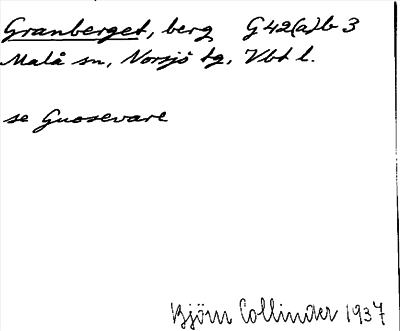 Granberget, berg G42(a)b 3
Malå sn, Norsjö tg, Vbt l.
se Guosevare
Björn Collinder 1937